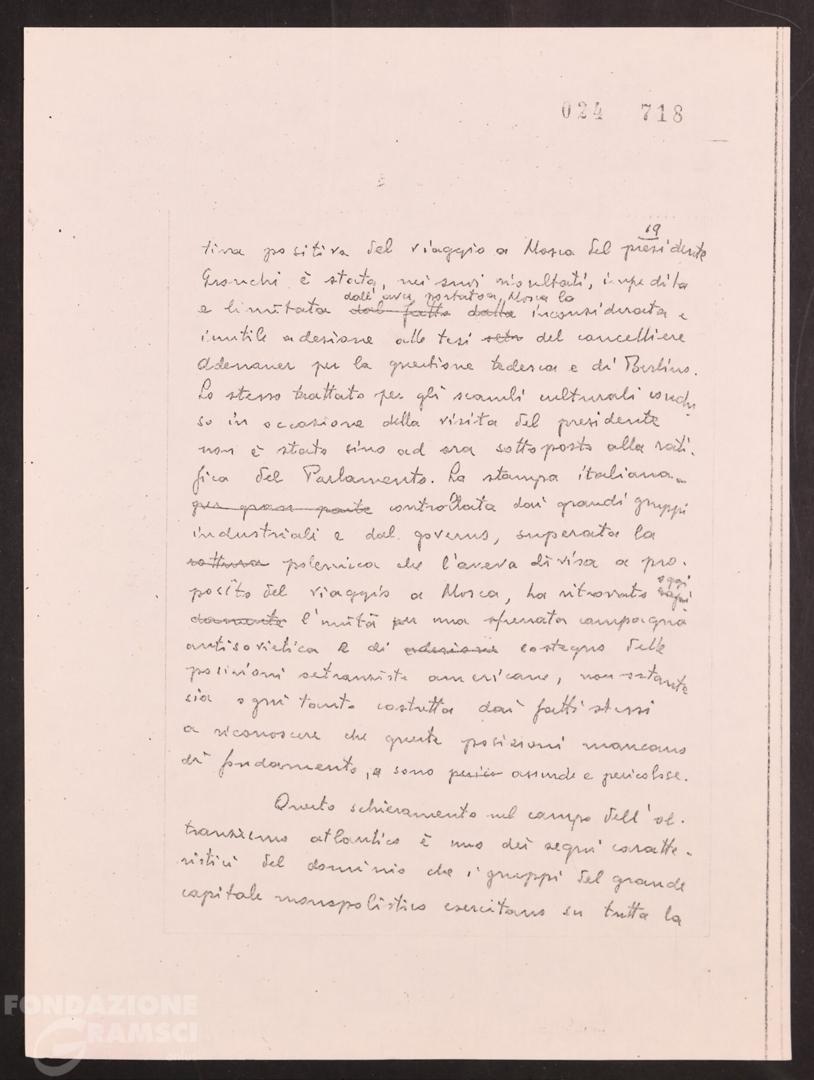 024 718
19
tiva positiva del viaggio a Mosca del presidente
Gronchi è stata, nei suoi risultati, impedita
dall'aver portato a Mosca la
e limitata dal fatto dalla inconsiderata e
inutile adesione alle tesi del cancelliere
Adenauer per la questione tedesca e di Berlino.
Lo stesso trattato per gli scambi culturali conchi
so in occasione della visita del presidente
non è stato sino ad ora sottoposto alla rati-
fica del Parlamento. La stampa italiana
per gran parte controllata dai grandi gruppi
industriali e dal governo, superata la
rottura polemica che l'aveva divisa a pro-
posito del viaggio a Mosca, ha ritrovato oggi rapi
damente l'unità per una sfrenata campagna
antisovietica e di adesione sostegno delle
posizioni oltranziste americane, nonostante
sia ogni tanto costretta dai fatti stessi
a riconoscere che queste posizioni mancano
di fondamento, e sono assurde e pericolose.
Questo schieramento nel campo dell'ol-
tranzismo atlantico è uno dei segni caratte-
ristici del dominio che i gruppi del grande
capitale monopolistico esercitano su tutta la
FONDAZIONE
GRAMSCI
onlus